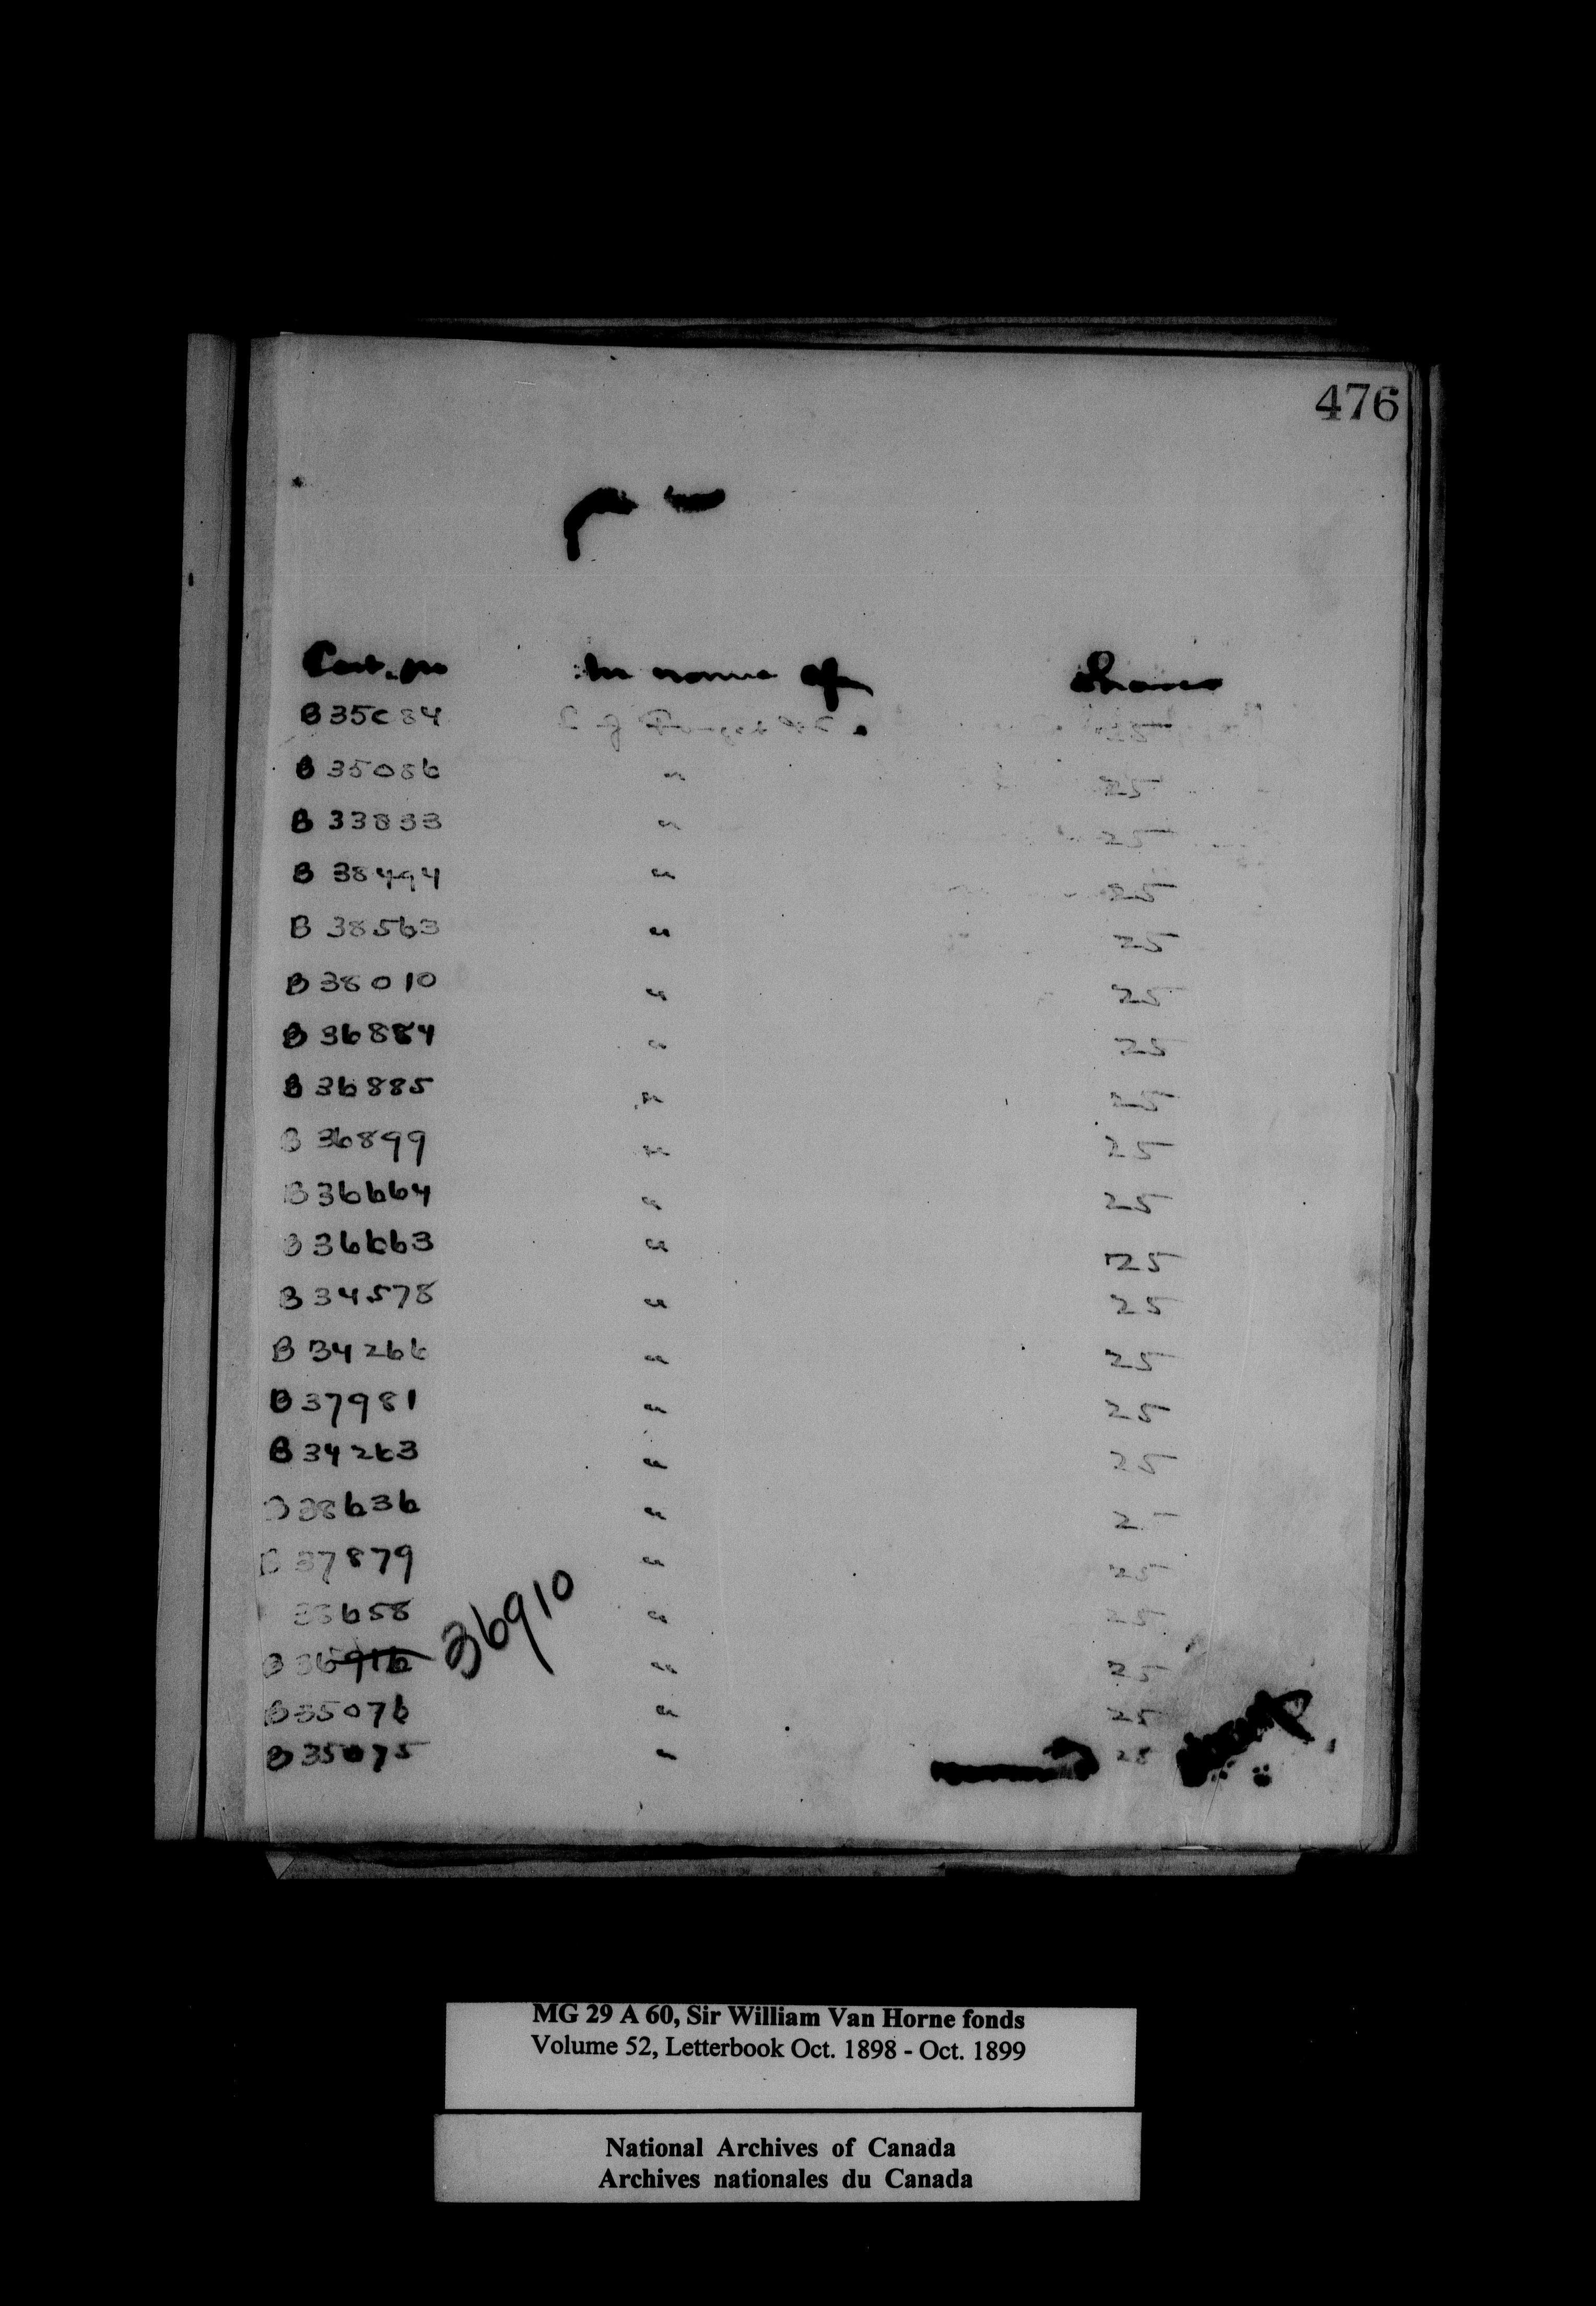 476
Cert. No In name of Shares
B 35084 L J Forget & Co 25
B 35086 " 25
B 33833 " 25
B 38494 " 25
B 38563 " 25
B 38010 " 25
B 36884 " 25
B 36885 " 25
B 36899 " 25
B 36664 " 25
B 36663 " 25
B 34578 " 25
B 34266 " 25
B 37981 " 25
B 34263 " 25
B 38636 " 2
B 37879 " 25
38658 " 25
B 36916 36910 " 25
B 35076 " 25
B 35075 " 25
MG 29 A 60, Sir William Van Horne fonds
Volume 52, Letterbook Oct. 1898 - Oct. 1899
National Archives of Canada
Archives nationales du Canada